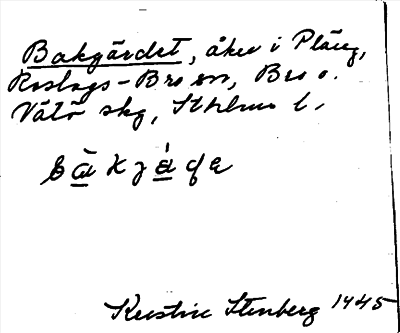 Bakgärdet, åker i Pläng,
Roslags-Bro sn, Bro o.
Vätö skg, Sthlms l.
Kerstin Stenberg 1945